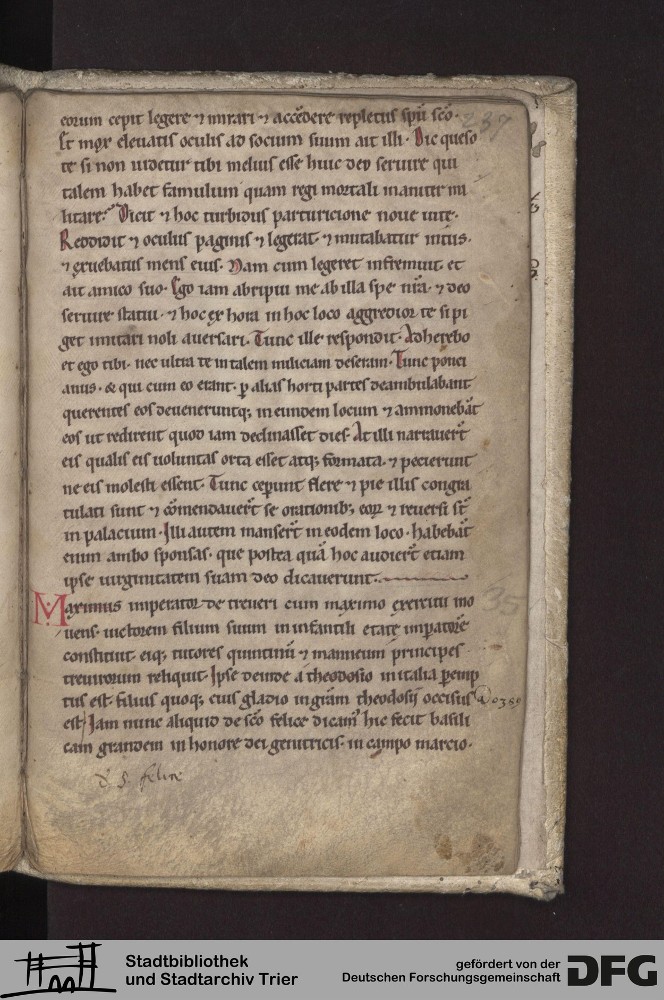 eorum cepit legere ⁊ mirari ⁊ accedere repletus spū scō.
237
Et mox eleuatis oculis ad socium suum ait illi. Dic queso
te si non uidetur tibi melius esse huic deo seruire qui
talem habet famulum quam regi mortali inaniter mi
litare. Dicit ⁊ hoc turbidus parturicione noue uite.
Reddidit ⁊ oculus paginis ⁊ legerat ⁊ mutabatur intus.
⁊ exuebatur mens eius. Nam cum legeret infremuit. et
ait amico suo. Ego iam abripui me ab illa spe nrā. ⁊ deo
seruire statui. ⁊ hoc ex hora in hoc loco aggredior te si pi
get imitari noli auersari. Tunc ille respondit. Adherebo
et ego tibi. nec ultra te in talem miliciam deseram. Tunc ponci
anus. & qui cum eo erant. p alias horti partes deambulabant
querentes eos deueneruntq; in eundem locum ⁊ ammonebāt
eos ut redirent quod iam declinasset dies. At illi narrauert̄
eis qualis eis uoluntas orta esset atq; formata. ⁊ pecierunt
ne eis molesti essent. Tunc ceperunt flere ⁊ pie illis congra
tulati sunt ⁊ cōmendauert̄ se orationib; eoꝝ ⁊ reuersi st̄
in palacium. Illi autem mansert̄ in eodem loco. habebāt
enim ambo sponsas. que postea quā hoc audiert̄ etiam
ipse uirginitatem suam deo dicauerunt.
Maximus imperator de treueri cum maximo exercitu mo
35
uens. uictorem filium suum in infantili etate imperatorē
constituit. eiq; tutores quintinū ⁊ manneum principes
treuirorum reliquit. Ipse deinde a theodosio in italia pemp
tus est. filius quoq; eius gladio in gram theodosii occisus
est. Iam nunc aliquid de scō felice dicam. hic fecit basili
cam grandem in honore dei genitricis. in campo marcio.
d. S. felice
Stadtbibliothek
und Stadtarchiv Trier
gefördert von der
Deutschen Forschungsgemeinschaft
DFG